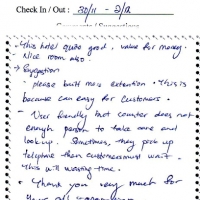 Check In / Out : 30/11 - 2/12
Comments / Suggestions
- This hotel quite good, value for money.
Nice room also.
- Suggestion
- please built more extention. This is
because can easy for customers.
- User friendly but counter does not
enough person to take care and
look up. Sometimes, they pick up
telephone then customer must wait.
This will wasting time.
- Thank you very much for
your all